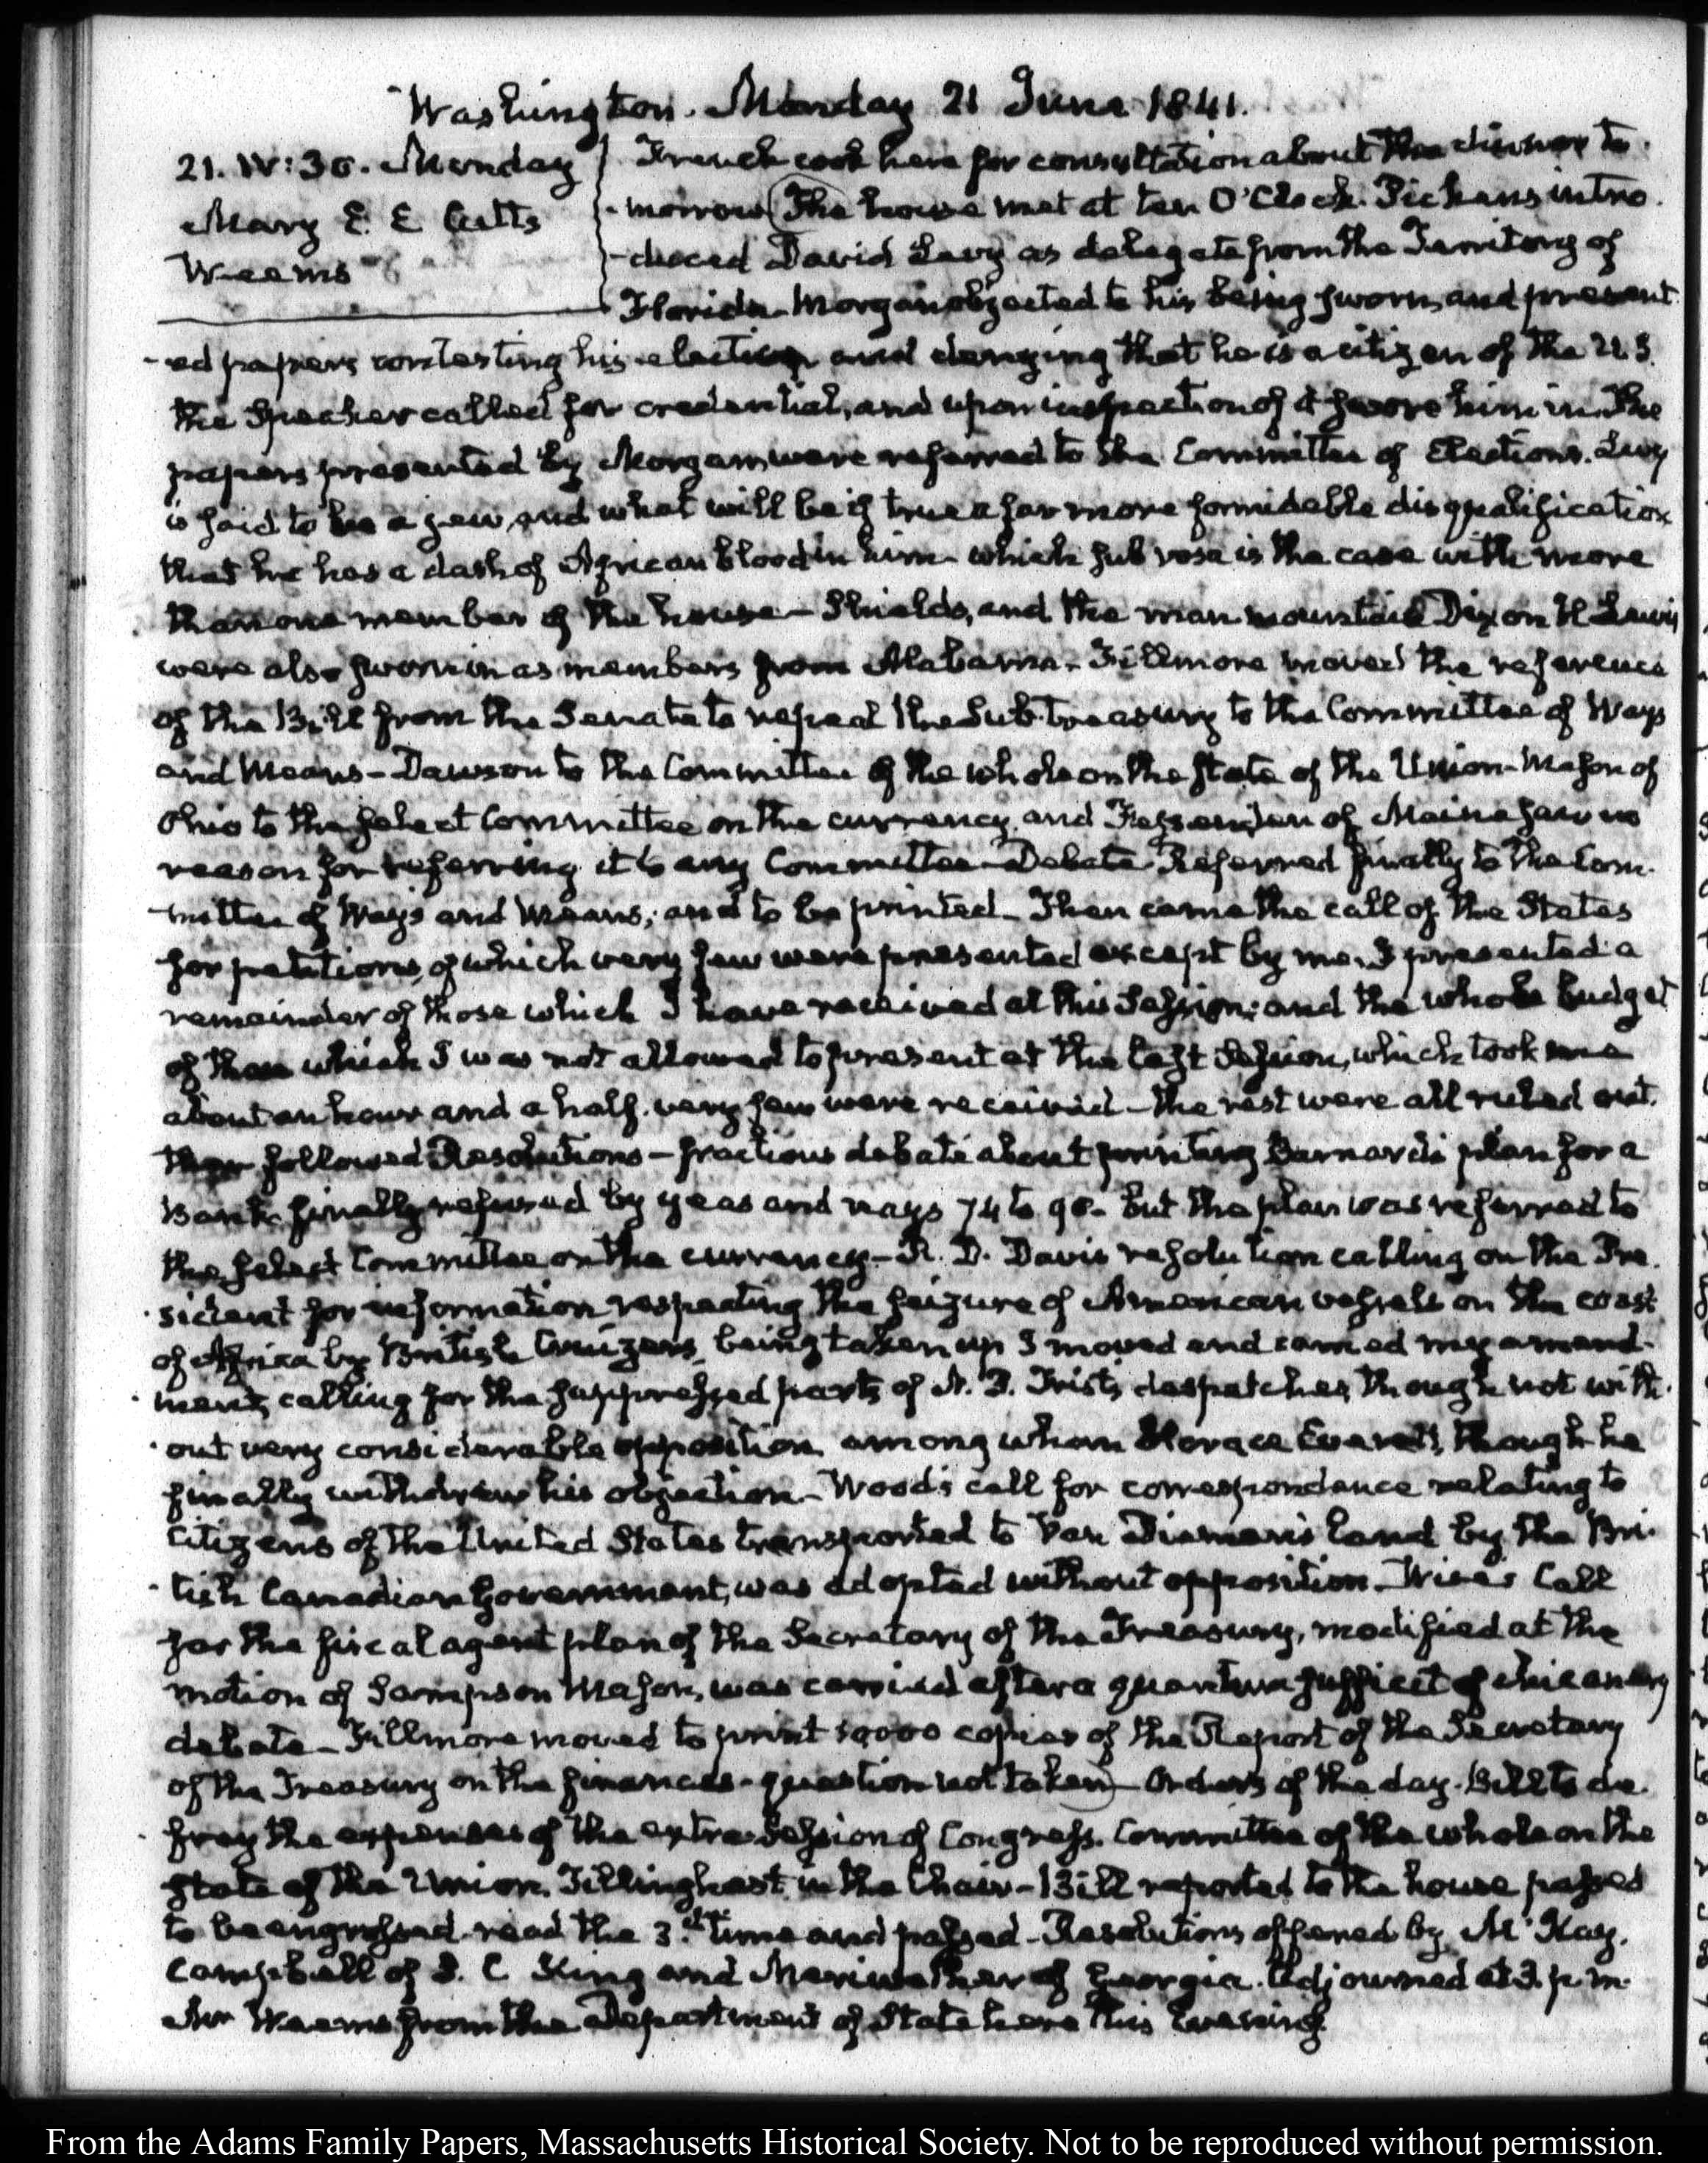 Washington. Monday 21 June 1841.
21. IV:30. Monday
Mary E. E Cutts
Weems
French cook here for consultation about the dinner to
-morrow The house met at ten O'Clock. Pickens intro
-duced David Levy as delegate from the Territory of
Florida. Morgan objected to his being sworn, and present
-ed papers contesting his election and denying that he is a citizen of the U.S.
the Speaker called for credential, and upon inspection of it swore him in. The
papers presented by Morgan were referred to the Committee of Elections. Levy
is said to be a jew, and what will be if true a far more formidable disqualification
that he has a dash of African blood in him which sub rosa is the case with more
than one member of the house — Shields, and the man mountain Dixon H Lewis
were also sworn in as members from Alabama. Fillmore moved the reference
of the Bill from the Senate to repeal the Sub-treasury to the Committee of Ways
and Means — Dawson to the Committee of the whole on the state of the Union — Mason of
Ohio to the select Committee on the currency, and Fessenden of Maine saw no
reason for referring it to any Committee — Debate. Referred finally to the Com-
-mittee of Ways and Means; and to be printed. Then came the call of the States
for petitions, of which very few were presented except by me. I presented a
remainder of those which I have received at this Session; and the whole budget
of them which I was not allowed to present at the last Session, which took me
about an hour and a half. very few were received — the rest were all ruled out.
then followed Resolutions — fractious debate about printing Barnard's plan for a
Bank. finally refused by yeas and nays 74 to 98. but the plan was referred to
the select Committee on the currency — R. D. Davis resolution calling on the Pre-
-sident for information respecting the seizure of American vessels on the coast
of Africa by British Cruizers, being taken up I moved and carried my amend-
-ment, calling for the suppressed parts of N. P. Trist's despatches, though not with-
-out very considerable opposition among whom Horace Everett, though he
finally withdrew his objection — Wood's call for correspondence relating to
citizens of the United States transported to Van Diemen's land by the Bri-
-tish Canadian Government, was adopted without opposition. Wise's Call
for the fiscal agent plan of the Secretary of the Treasury, modified at the
motion of Sampson Mason, was carried after a quantum sufficit of chicanery
debate — Fillmore moved to print 10000 copies of the Report of the Secretary
of the Treasury on the finances — question not taken — Orders of the day. Bill to de-
-fray the expenses of the extra Session of Congress. Committee of the whole on the
state of the Union. Tillinghast in the Chair — Bill reported to the house passed
to be engrossed read the 3.d time and passed — Resolutions offered by McKay.
Campbell of S. C King and Meriwether of Georgia. Adjourned at 3. p. m.
Mr Weems from the Department of State here this Evening.
From the Adams Family Papers, Massachusetts Historical Society. Not to be reproduced without permission.